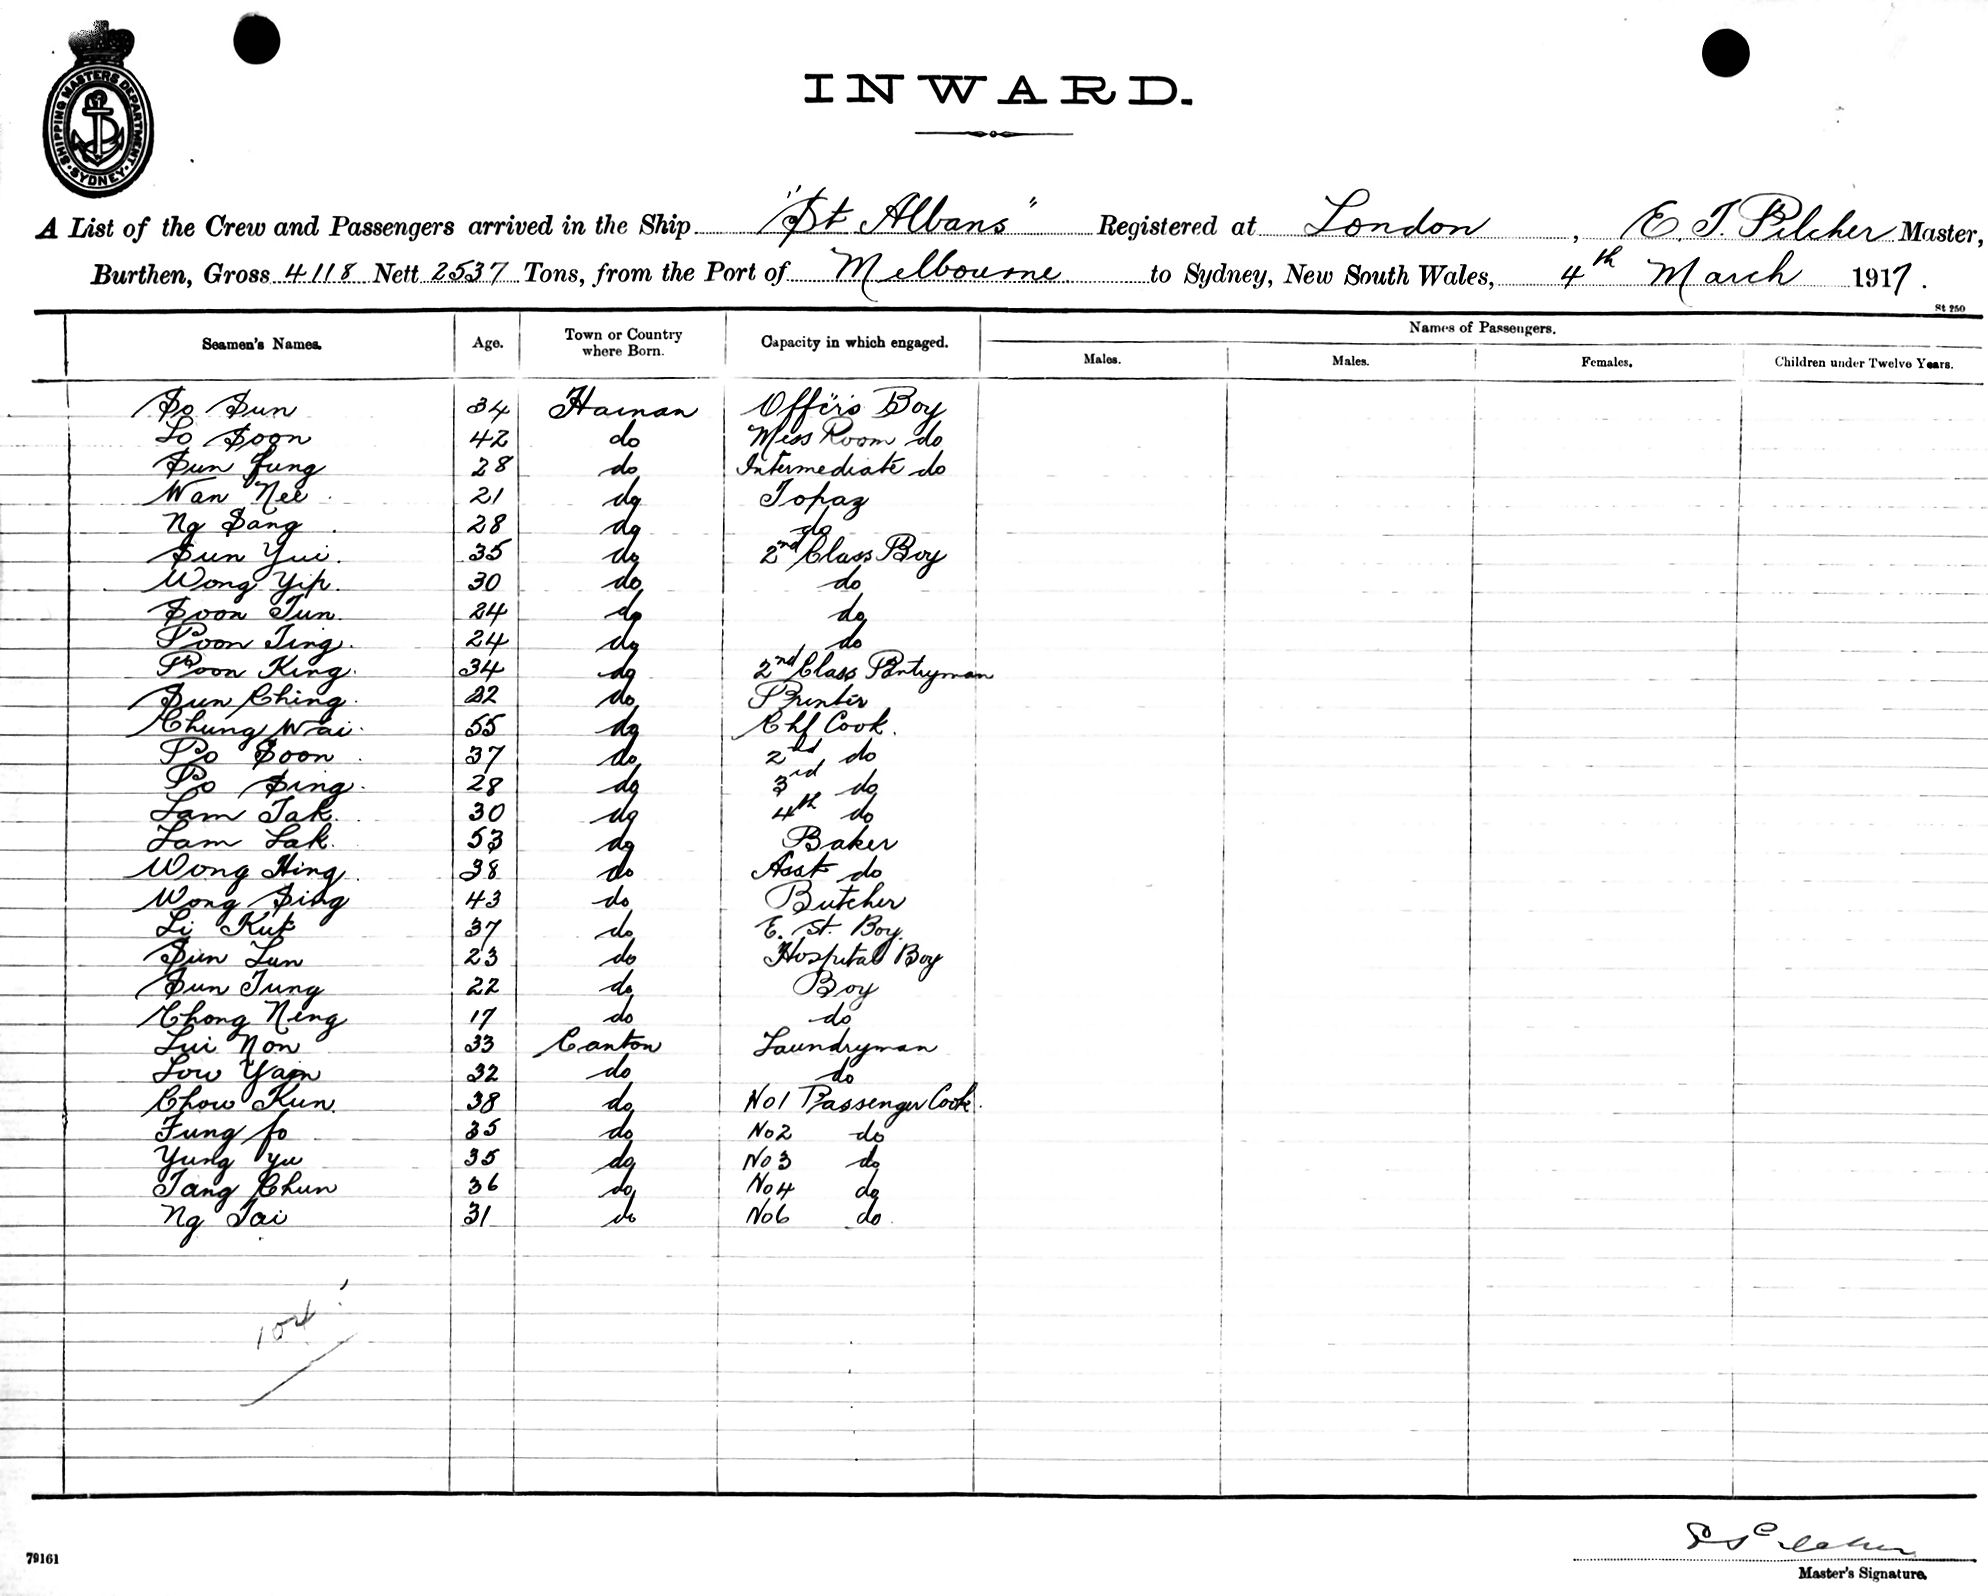 SHIPPING MASTERS DEPARTMENT SYDNEY
INWARD.
A List of the Crew and Passengers arrived in the Ship "St Albans" Registered at London, E. T. Pilcher Master,
Burthen, Gross 4118 Nett 2537 Tons, from the Port of Melbourne to Sydney, New South Wales, 4th March 1917.
St 250
Seamen's Names. Age. Town or Country where Born. Capacity in which engaged. Names of Passengers.
Males. Males. Females. Children under Twelve Years.
So Sun 34 Hainan Offirs Boy
Lo Soon 42 do Mess Room do
Sun Fung 28 do Intermediate do
Wan Nee 21 do Topaz
Ng Sang 28 do do
Sun Yui. 35 do 2nd Class Boy
Wong Yip. 30 do do
Soon Tun. 24 do do
Poon Ting. 24 do do
Poon King. 34 do 2nd Class Pantryman
Sun Ching. 22 do Printer
Chung Wai. 55 do Chf Cook.
Po Soon 37 do 2nd do
Po Sing. 28 do 3rd do
Lam Tak. 30 do 4th do
Lam Lak. 53 do Baker
Wong Hing. 38 do Asst do
Wong Sing 43 do Butcher
Li Kuk 37 do E. St. Boy.
Sun Lun 23 do Hospital Boy
Sun Tung 22 do Boy
Chong Neng 17 do do
Lui Non 33 Canton Laundryman
Low Yam 32 do do
Chow Kun. 38 do No1 Passenger Cook.
Fung Fo 35 do No2 do
Yung Yu 35 do No3 do
Tang Chun 36 do No4 do
Ng Tai 31 do No6 do
79161
Master's Signature.